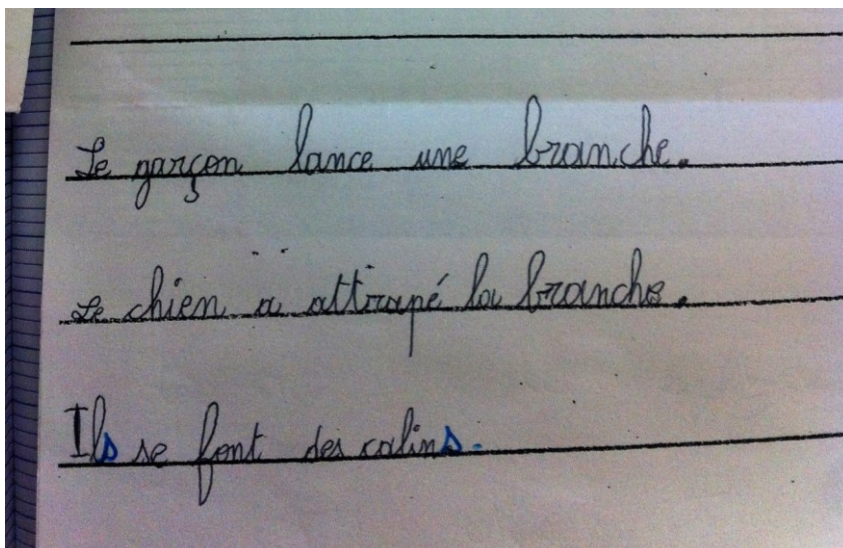 Le garçon lance une branche.
Le chien a attrapé la branche.
Ils se font des calins.